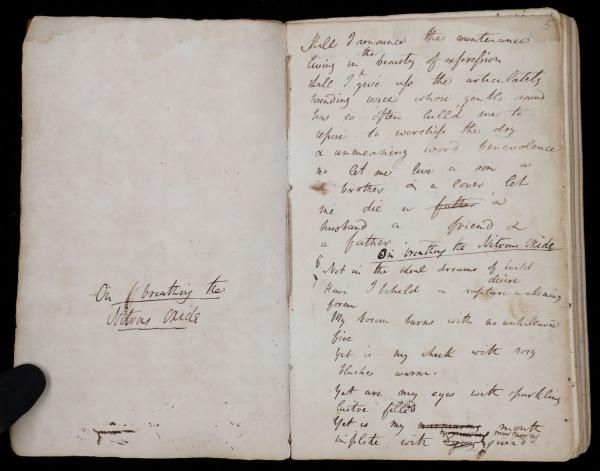 On breathing the
Nitrous Oxide
5
Shall I renounce the countenance
living in the beauty of expression
shall I give up the articulately
sounding voice whose gentle sound
has so often lull'd me to
repose to worship the dry
& unmeaning word benevolence
no let me live a son a
brother & a lover let
me die a father a
husband a friend &
a father
On breathing the Nitrous Oxide
Not in the ideal dreams of wild desire
Have I beheld a rapture wakening
form
My bosom burns with no unhallowed
fire
Yet is my cheek with rosy
blushes warm.
Yet are my eyes with sparkling
lustre filled
Yet is my murmuring mouth
implete with murmuring sound